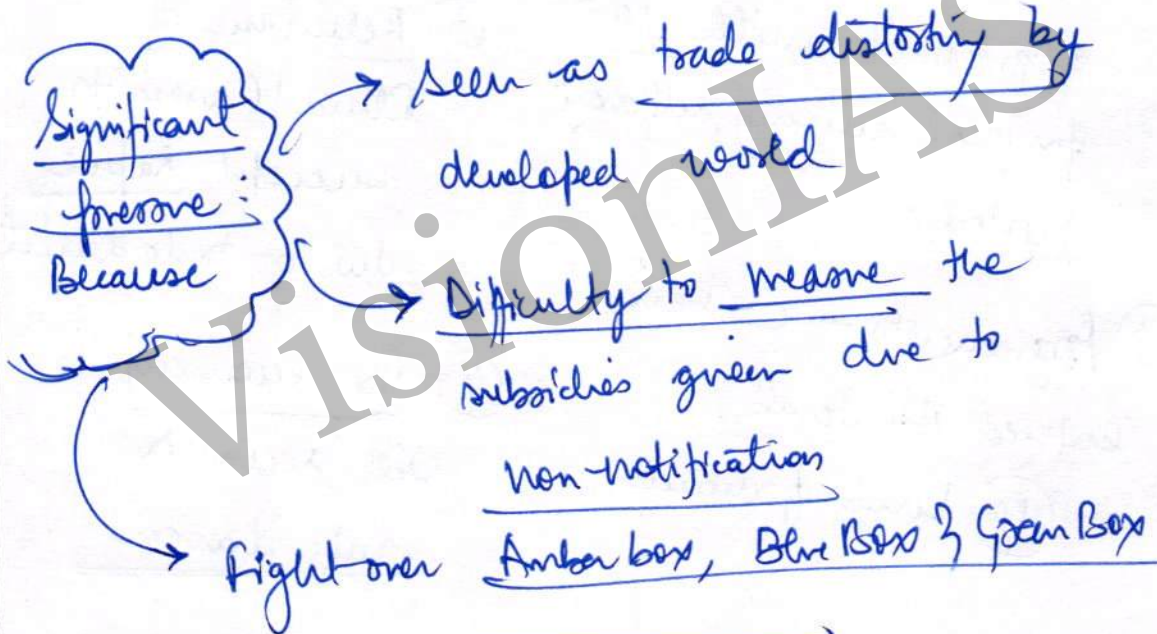 Significant
pressure :
Because
→ seen as trade distorting by
developed world
→ Difficulty to measure the
subsidies given due to
non-notification
→ Fight over Amber box, Blue Box & Green Box
VisionIAS